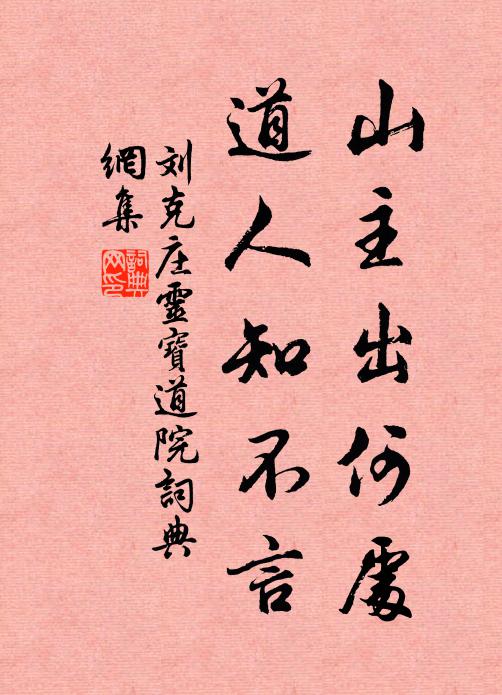 山主出何處
道人知不言
刘克庄靈寶道院詞典
網集
詞典网印